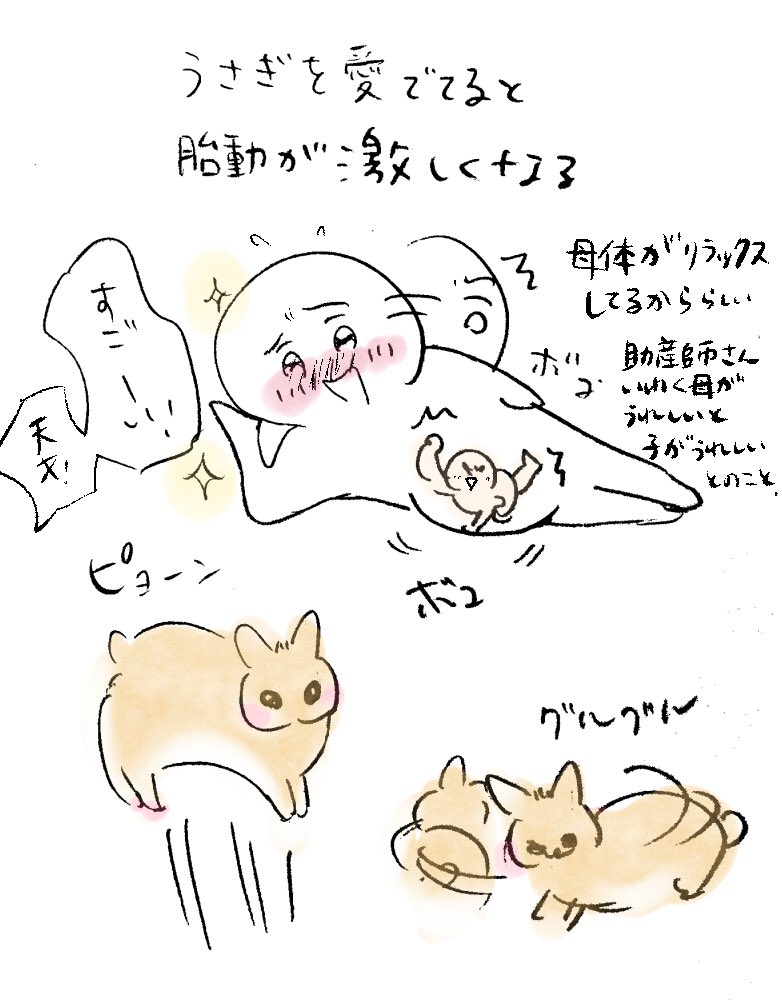 うさぎを愛でてると
胎動が激しくなる
母体がリラックス
してるかららしい
助産師さん
いわく母が
うれしいと
子がうれしい
とのこと.
すご
ーい!
天才!
ボコ
ボコ
ピョーン
グルグル